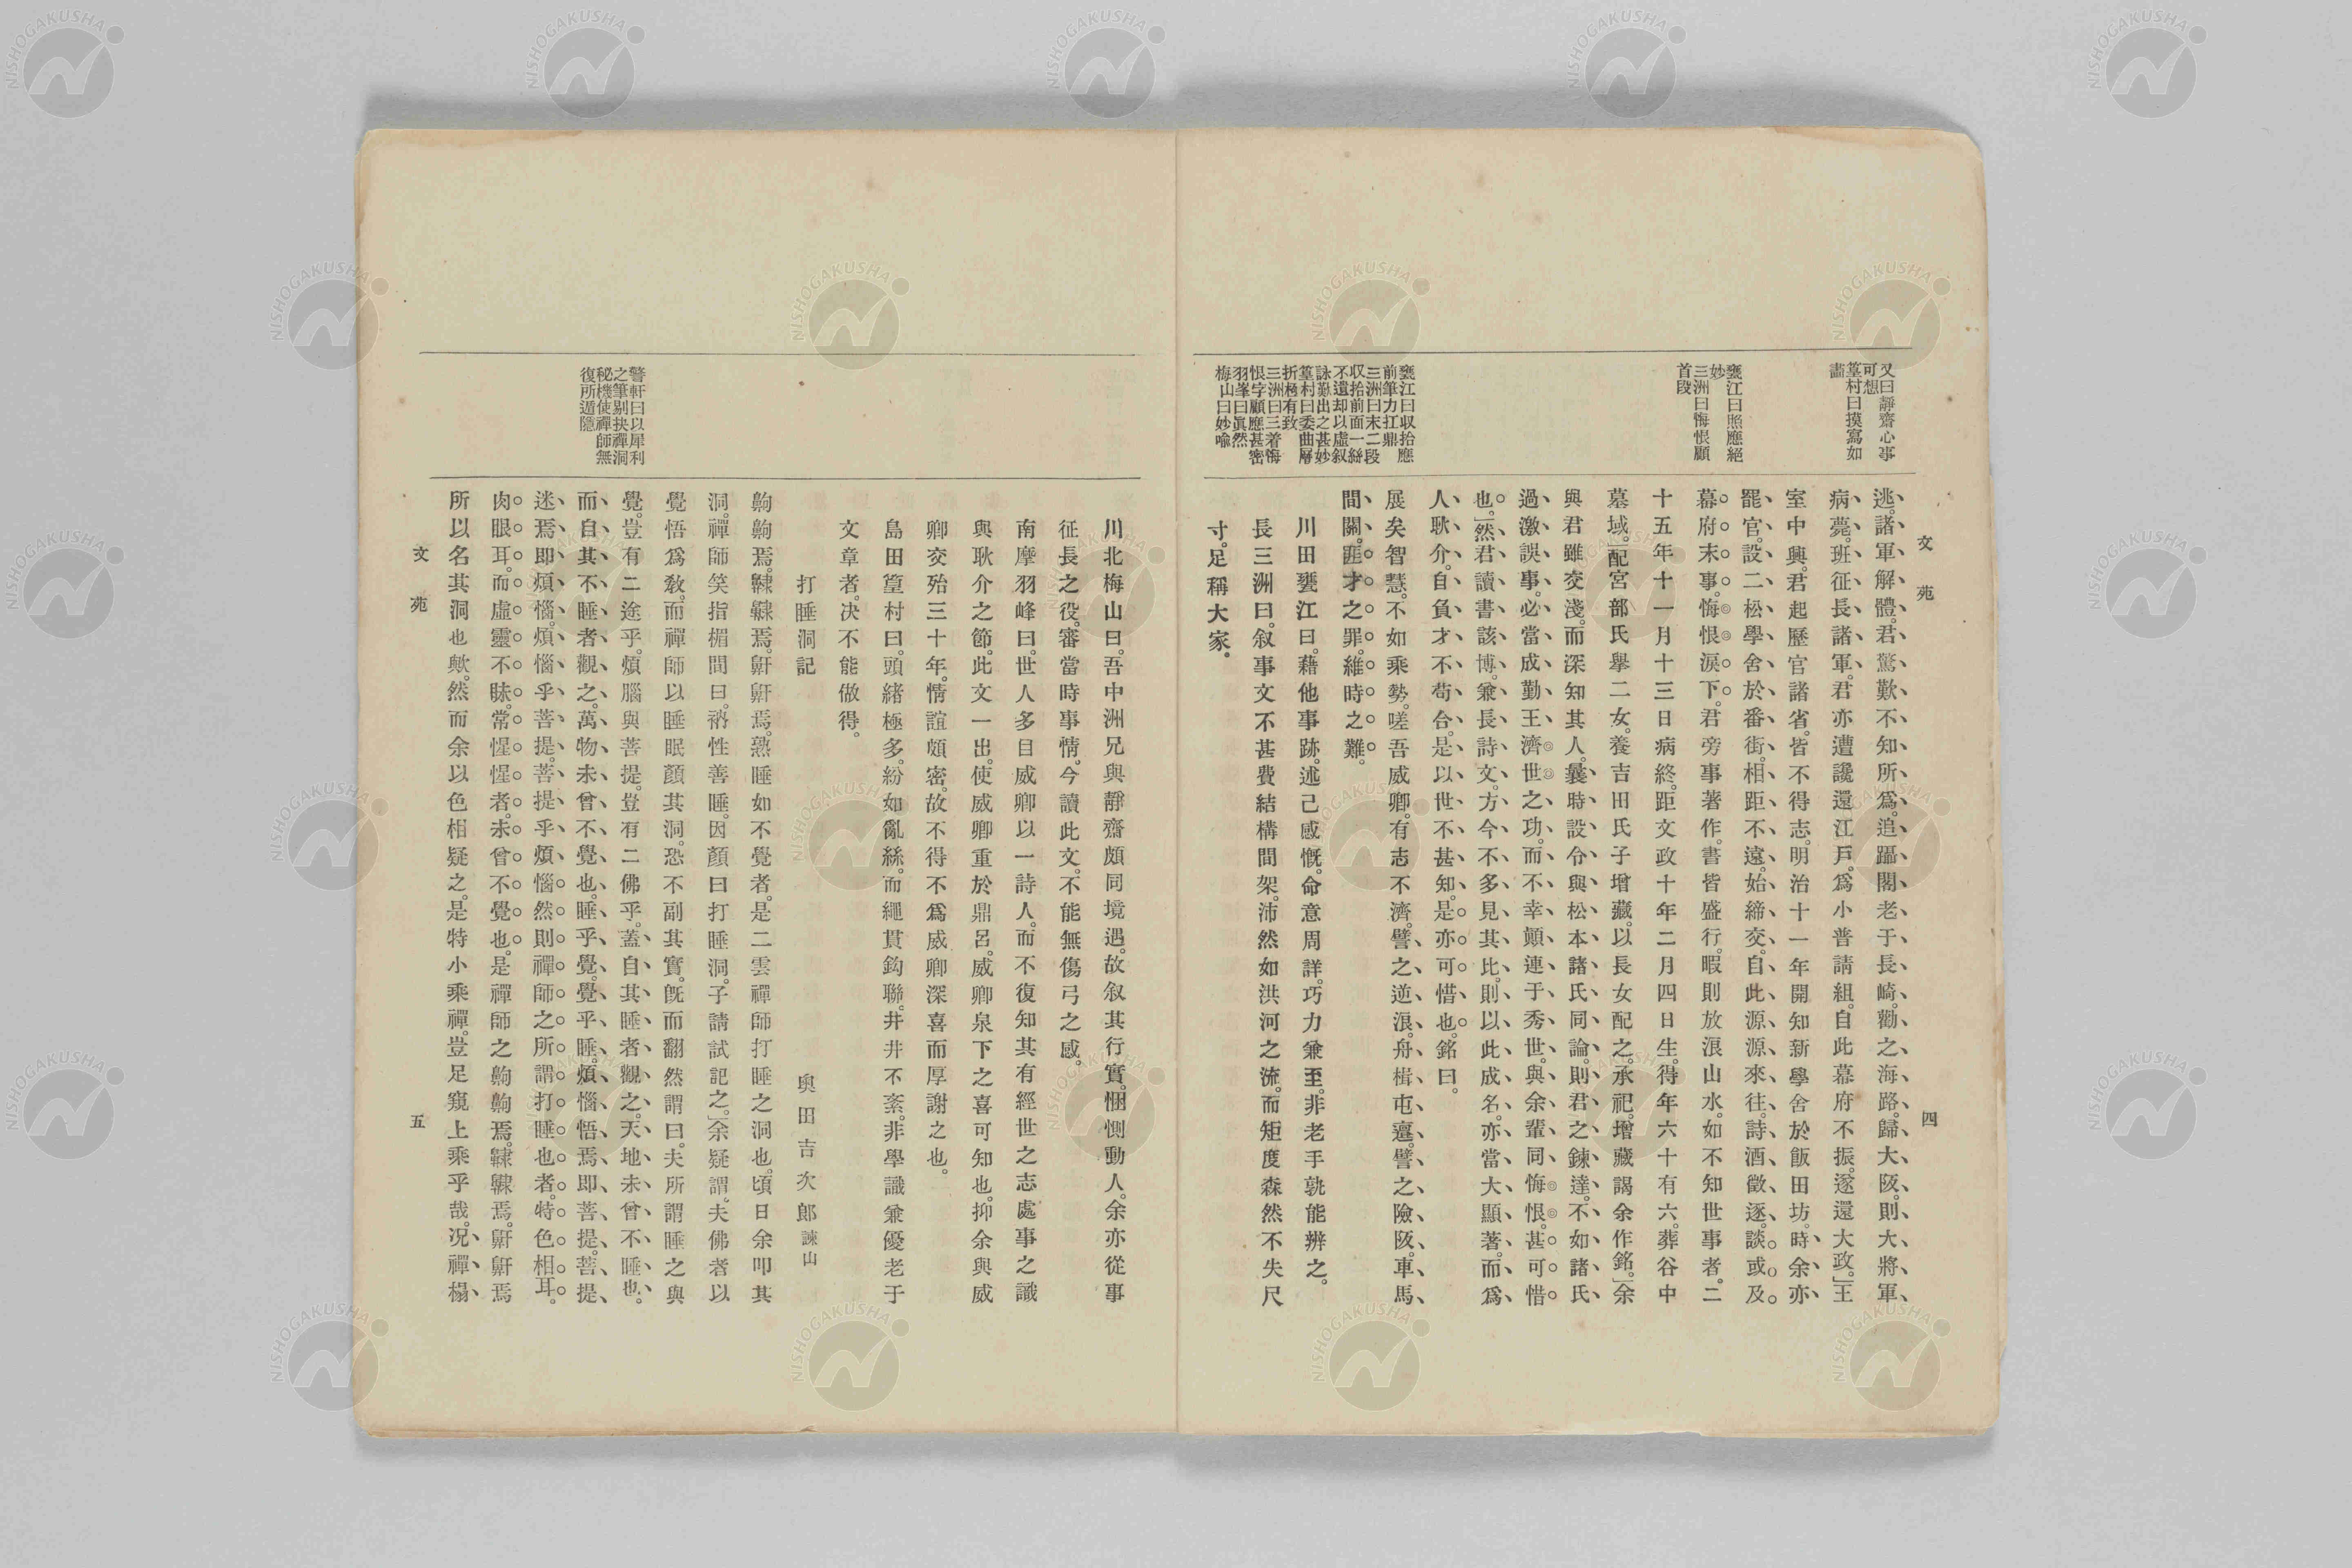 文苑
四
又曰靜齋心事
可想
篁村曰摸寫如
畵
甕江曰照應絕
妙
三洲曰悔恨顧
首段
甕江曰収拾應
前筆力扛鼎
三洲曰末二段
収拾前面一絲
不遺却以虛叙
詠歎出之甚妙
篁村曰委曲層
折極有致
三洲曰三着悔
恨字顧應甚密
羽峯曰眞然
梅山曰妙喩
逃。諸軍解體。君驚歎不知所爲。追躡閣老于長崎。勸之海路。歸大阪。則大將軍
病薨。班征長諸軍。君亦遭讒還江戶。爲小普請組。自此幕府不振。遂還大政。」王
室中興。君起歷官諸省。皆不得志。明治十一年開知新學舍於飯田坊。時余亦
罷官。設二松學舍於番街。相距不遠。始締交。自此源源來往。詩酒徵逐。談或及
幕府末事。悔恨淚下。君旁事著作。書皆盛行。暇則放浪山水。如不知世事者。二
十五年十一月十三日病終。距文政十年二月四日生。得年六十有六。葬谷中
墓域。」配宮部氏擧二女。養吉田氏子增藏。以長女配之。承祀。增藏謁余作銘。」余
與君雖交淺。而深知其人。曩時設令與松本諸氏同論。則君之鍊達。不如諸氏
過激誤事。必當成勤王濟世之功。而不幸顚連于秀世。與余輩同悔恨。甚可惜
也。」然君讀書該博。兼長詩文。方今不多見其比。則以此成名。亦當大顯著。而爲
人耿介。自負才不苟合。是以世不甚知。是亦可惜也。銘曰。
展矣智慧。不如乘勢。嗟吾威卿。有志不濟。譬之逆浪。舟楫屯邅。譬之險阪。車馬
間關。匪才之罪。維時之難。
川田甕江曰。藉他事跡。述己感慨。命意周詳。巧力兼至。非老手孰能辨之。
長三洲曰。叙事文不甚費結構間架。沛然如洪河之流。而矩度森然不失尺
寸。足稱大家。
川北梅山曰。吾中洲兄與靜齋頗同境遇。故叙其行實。悃惻動人。余亦從事
征長之役。審當時事情。今讀此文。不能無傷弓之感。
南摩羽峰曰。世人多目威卿以一詩人。而不復知其有經世之志處事之識
與耿介之節。此文一出。使威卿重於鼎呂。威卿泉下之喜可知也。抑余與威
卿交殆三十年。情誼頗密。故不得不爲威卿深喜而厚謝之也。
島田篁村曰。頭緒極多。紛如亂絲。而繩貫鈎聯。井井不紊。非學識兼優老于
文章者。決不能做得。
打睡洞記
奧田吉次郎諫山
齁齁焉。䶎䶎焉。鼾鼾焉。熟睡如不覺者。是二雲禪師打睡之洞也。頃日余叩其
洞。禪師笑指楣間曰。衲性善睡。因顏曰打睡洞。子請試記之。」余疑謂。夫佛者以
覺悟爲敎。而禪師以睡眠顏其洞。恐不副其實。旣而翻然謂曰。夫所謂睡之與
覺。豈有二途乎。煩腦與菩提。豈有二佛乎。蓋自其睡者觀之。天地未曾不睡也。
而自其不睡者觀之。萬物未曾不覺也。睡乎覺。覺乎睡。煩惱悟焉。即菩提。菩提
迷焉。即煩惱。煩惱乎菩提。菩提乎煩惱。然則禪師之所謂打睡也者。特色相耳。
肉眼耳。而虛靈不昧。常惺惺者。未曾不覺也。是禪師之齁齁焉。䶎䶎焉。鼾鼾焉
所以名其洞也歟。然而余以色相疑之。是特小乘禪。豈足窺上乘乎哉。況禪榻
警軒曰以犀利
之筆剔抉禪洞
秘機使禪師無
復所遁隱
文苑
五
NISHOGAKUSHA